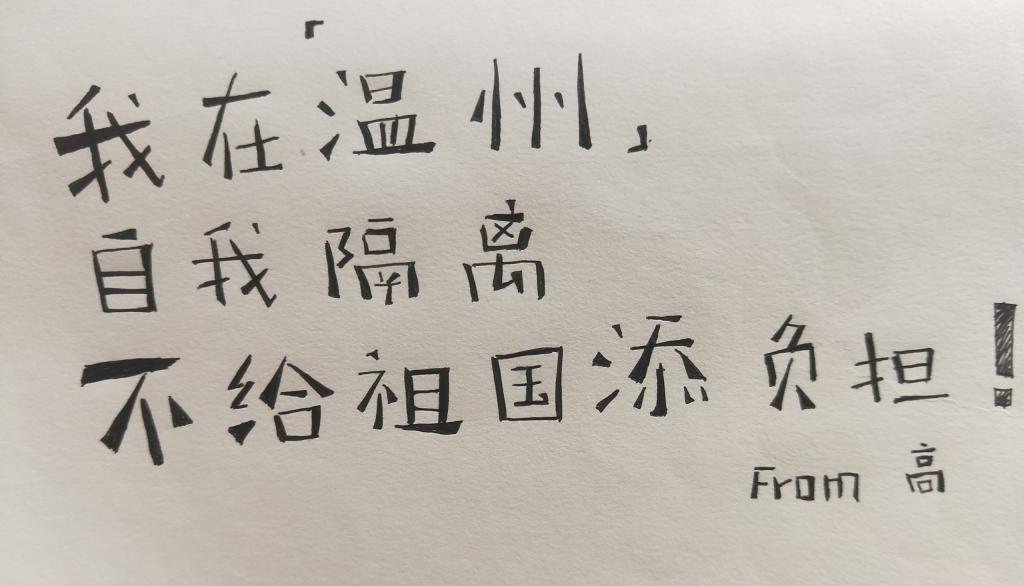 我在「温州」
自我隔离
不给祖国添负担！
From 高